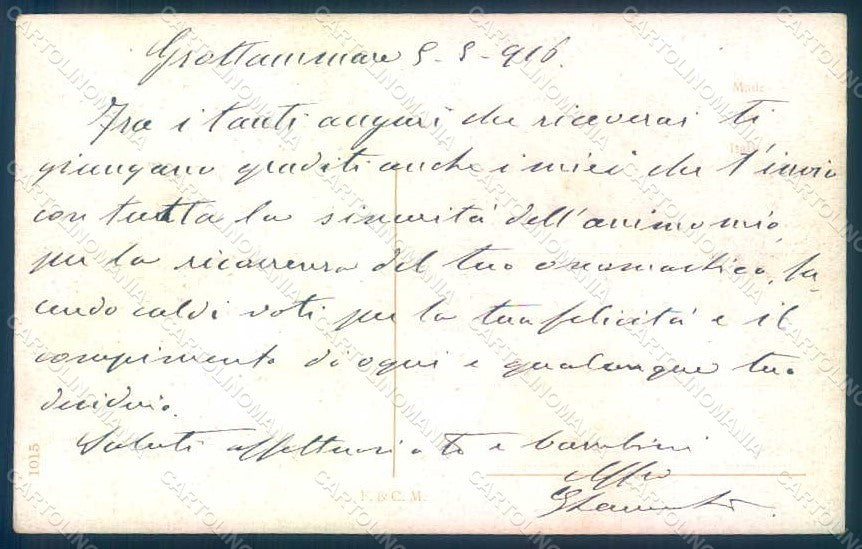 Grottammare 5-5-916.
Made
Fra i tanti auguri che riceverai ti
Italy
giungano graditi anche i miei che t'invio
con tutta la sincerità dell'animo mio,
per la ricorrenza del tuo onomastico, fa-
cendo caldi voti per la tua felicità e il
compimento di ogni e qualunque tuo
desiderio.
Saluti affettuosi a te e bambini
Aff/mo
1015
F. & C. M.
CARTOLINOMANIA